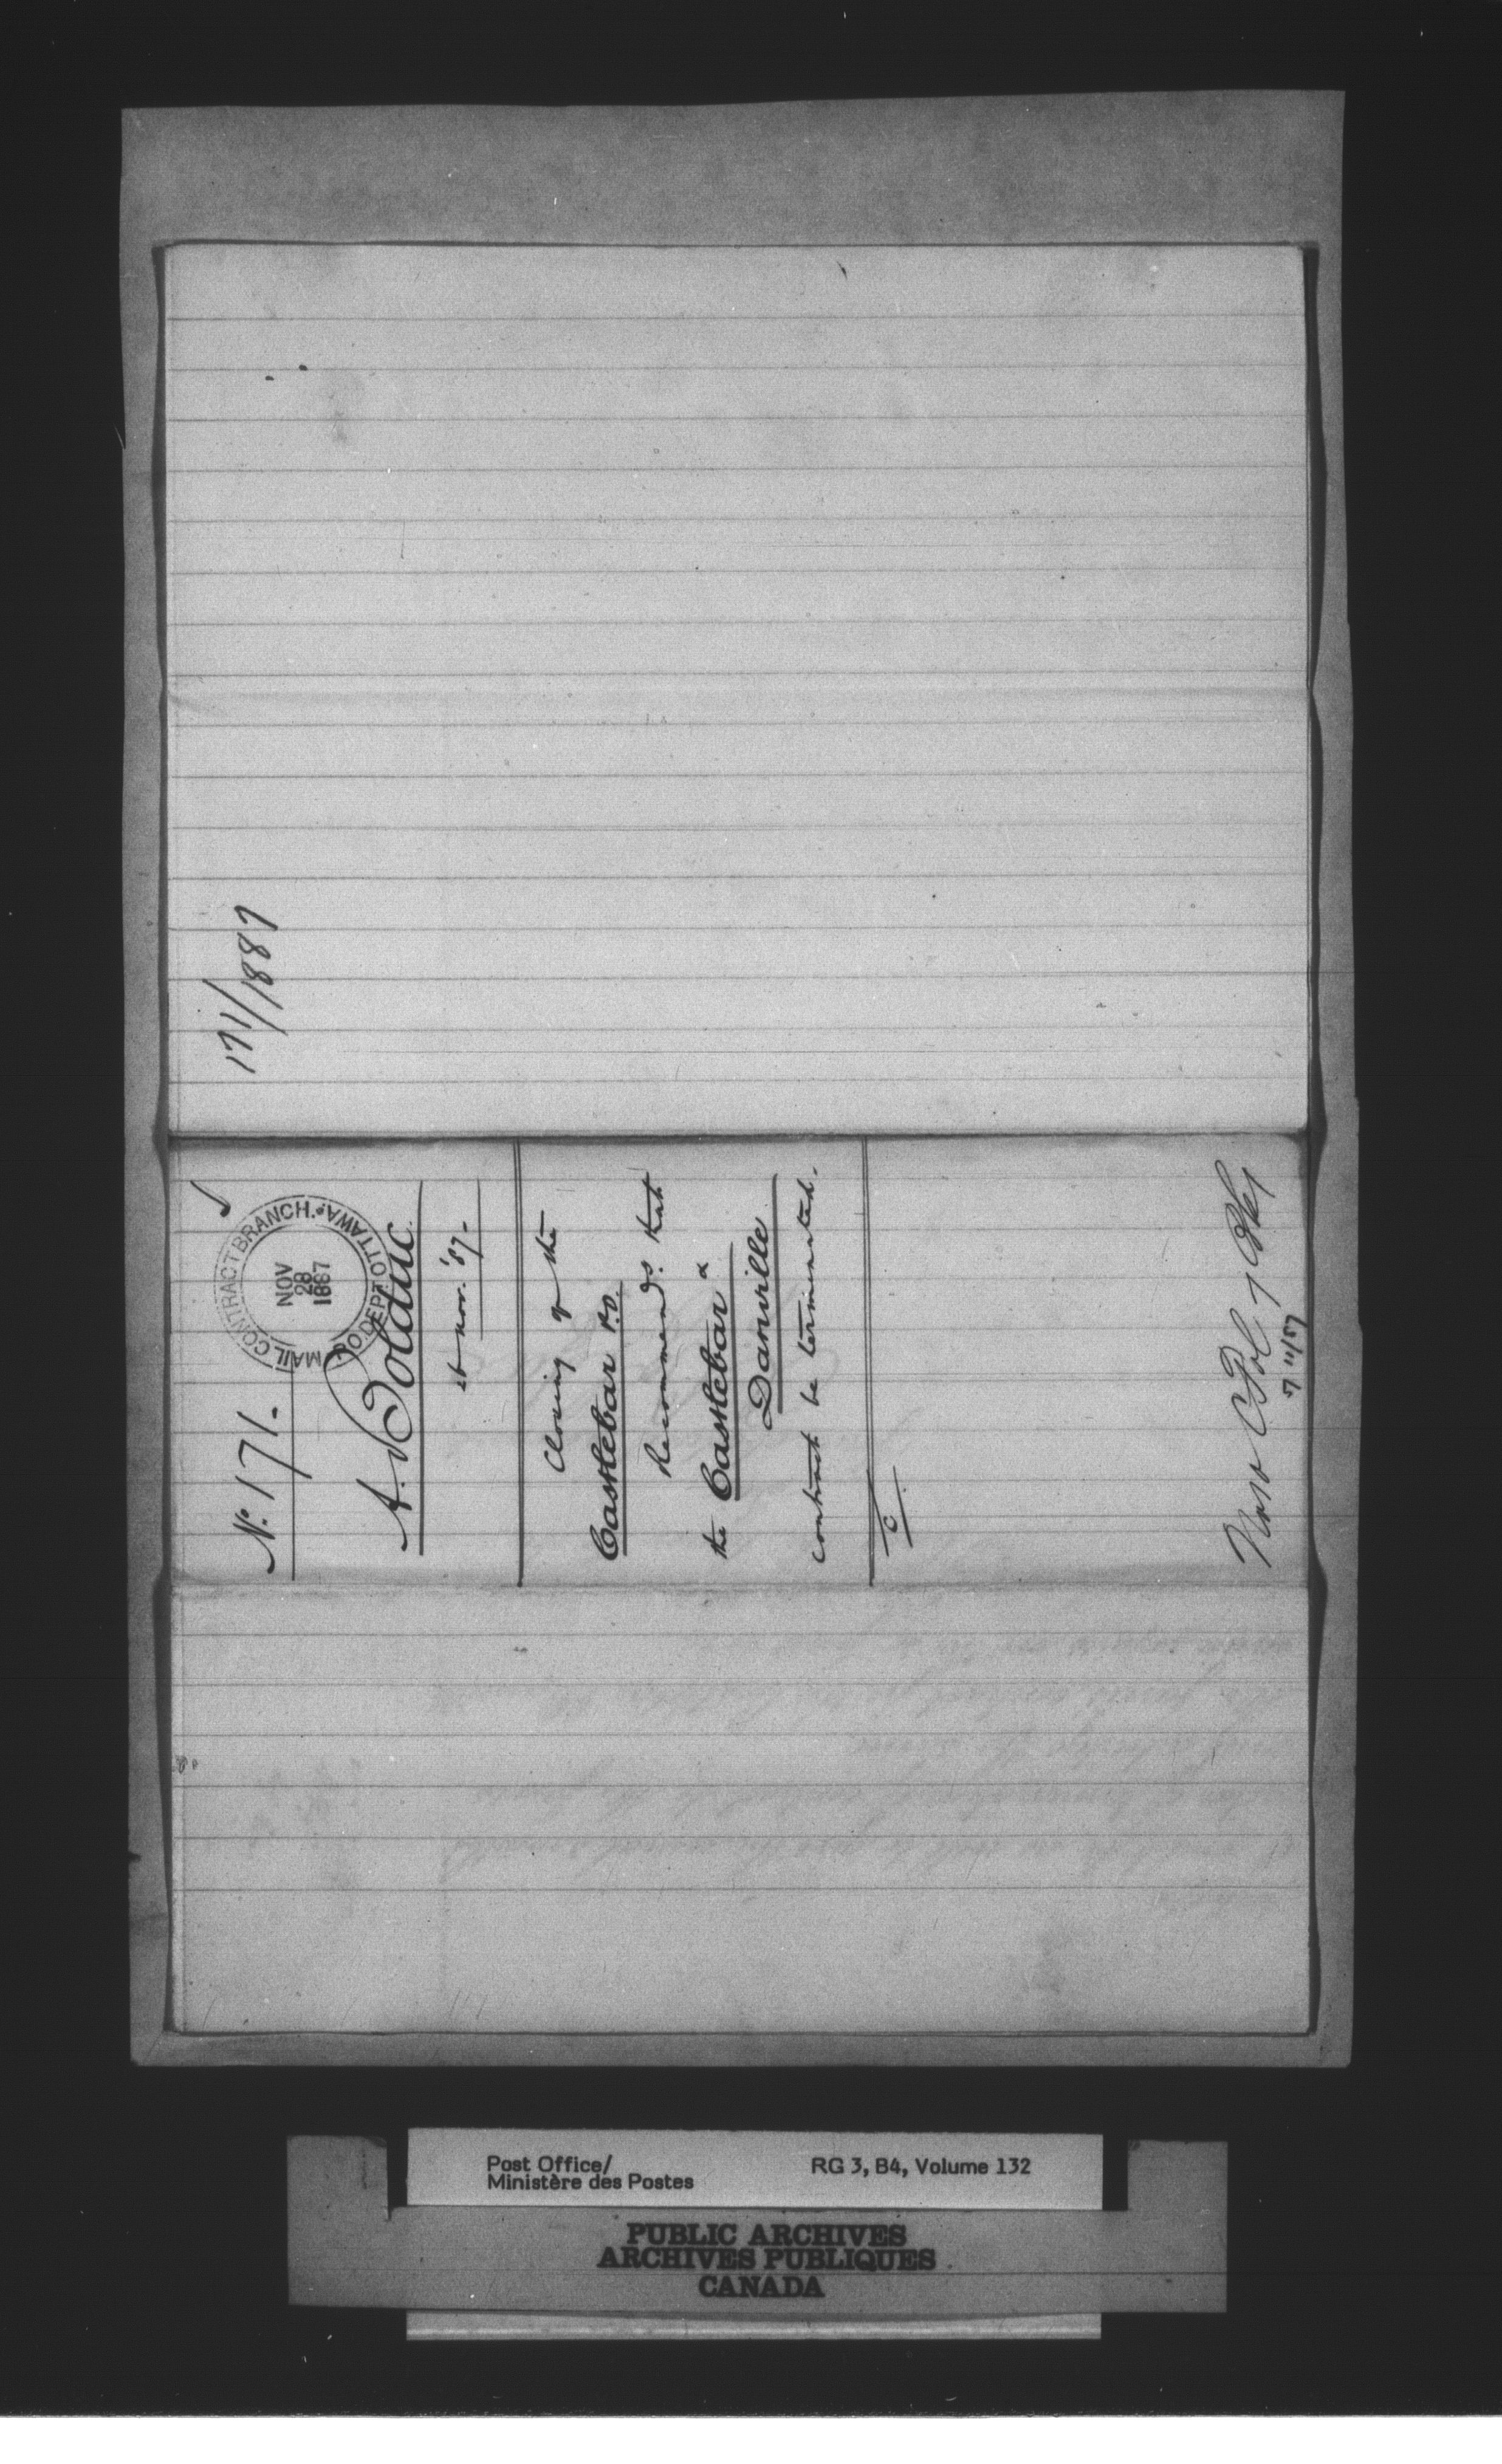 171/1887
No. 171.
MAIL CONTRACT BRANCH. P.O. DEPT. OTTAWA.
NOV
28
1887
A. Bolduc
Nov. '87-
Closing of the
Castlebar P.O.
Recommends that
the Castlebar &
Danville
contract be terminated.
C
7 11/87
Post Office/
Ministère des Postes
RG 3, B4, Volume 132
PUBLIC ARCHIVES
ARCHIVES PUBLIQUES
CANADA